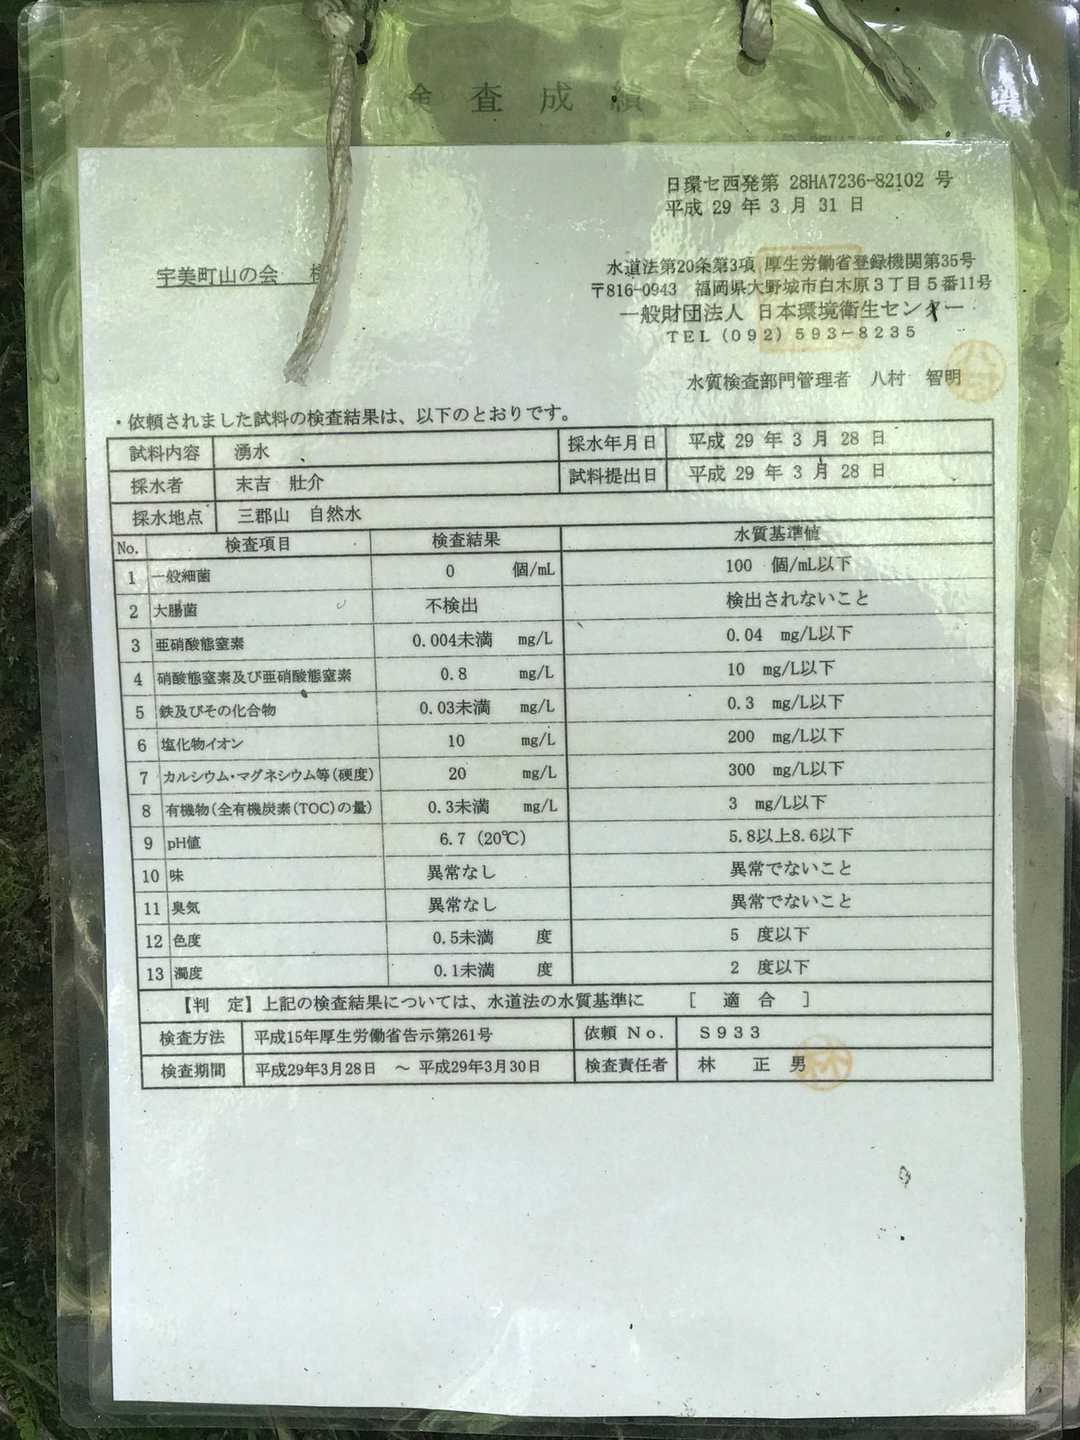 検査成績書
日環セ西発第 28HA7236-82102 号
平成 29 年 3 月 31 日
宇美町山の会
水道法第20条第3項 厚生労働省登録機関第35号
〒816-0943 福岡県大野城市白木原3丁目5番11号
一般財団法人 日本環境衛生センター
TEL(092)593-8235
水質検査部門管理者 八村 智明
・依頼されました試料の検査結果は、以下のとおりです。
試料内容 湧水 採水年月日 平成 29 年 3 月 28 日
採水者 末吉 壯介 試料提出日 平成 29 年 3 月 28 日
採水地点 三郡山 自然水
No. 検査項目 検査結果 水質基準値
1 一般細菌 0 個/mL 100 個/mL以下
2 大腸菌 不検出 検出されないこと
3 亜硝酸態窒素 0.004未満 mg/L 0.04 mg/L以下
4 硝酸態窒素及び亜硝酸態窒素 0.8 mg/L 10 mg/L以下
5 鉄及びその化合物 0.03未満 mg/L 0.3 mg/L以下
6 塩化物イオン 10 mg/L 200 mg/L以下
7 カルシウム・マグネシウム等(硬度) 20 mg/L 300 mg/L以下
8 有機物(全有機炭素(TOC)の量) 0.3未満 mg/L 3 mg/L以下
9 pH値 6.7 (20℃) 5.8以上8.6以下
10 味 異常なし 異常でないこと
11 臭気 異常なし 異常でないこと
12 色度 0.5未満 度 5 度以下
13 濁度 0.1未満 度 2 度以下
【判 定】上記の検査結果については、水道法の水質基準に [ 適 合 ]
検査方法 平成15年厚生労働省告示第261号 依頼 No. S933
検査期間 平成29年3月28日 ～ 平成29年3月30日 検査責任者 林 正 男